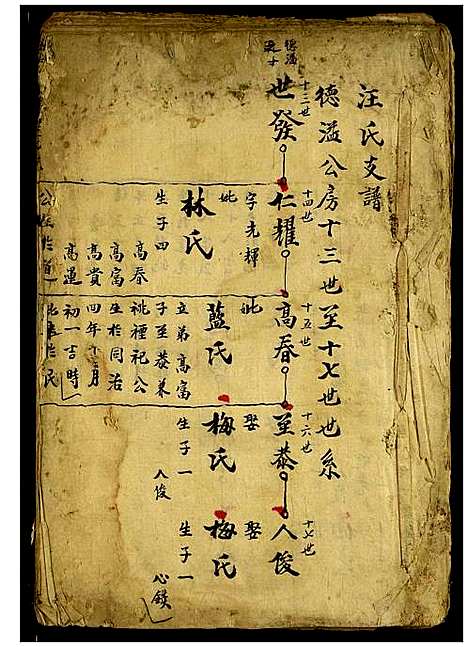 汪氏支譜
德溢公房十三世至十七世世系
十三世
世發
德溢
十四世
仁耀
字光輝
妣
林氏
生子四
高春
高富
高貴
高運
十五世
高春
妣
藍氏
立弟高富
子至恭兼
祧禋祀公
生於同治
四年十月
初一吉時
十六世
至恭
娶
梅氏
生子一
人俊
十七世
人俊
娶
梅氏
生子一
心鏌